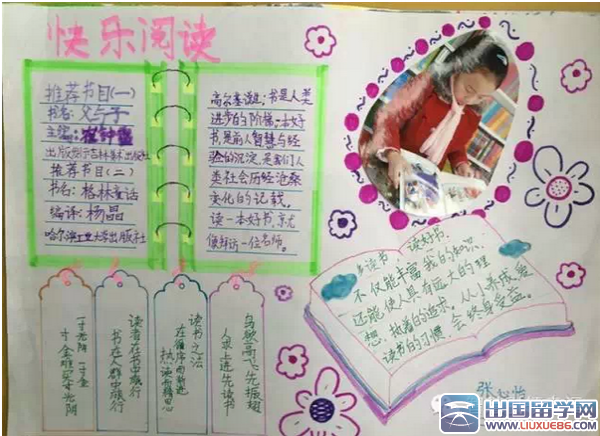 快乐阅读
推荐书目(一)
书名:父与子
主编:崔钟雷
出版发行吉林美术出版社
推荐书目(二)
书名:格林童话
编译:杨晶
哈尔滨工业大学出版社
高尔基说:书是人类
进步的阶梯,一本好
书,是前人智慧与经
验的沉淀,是我们人
类社会历经沧桑
变化的记载。
读一本好书,就
像拜访一位名师。
多读书,读好书,
不仅能丰富我的知识,
还能使人具有远大的理
想,执着的追求。从小养成爱
读书的习惯,会终身受益。
一寸光阴一寸金
寸金难买寸光阴
读者在书中旅行
书在人群中旅行
读书之法
在循序而渐进
熟读而精思
鸟欲高飞先振翅
人求上进先读书
张
出国留学网
www.liuxue86.com